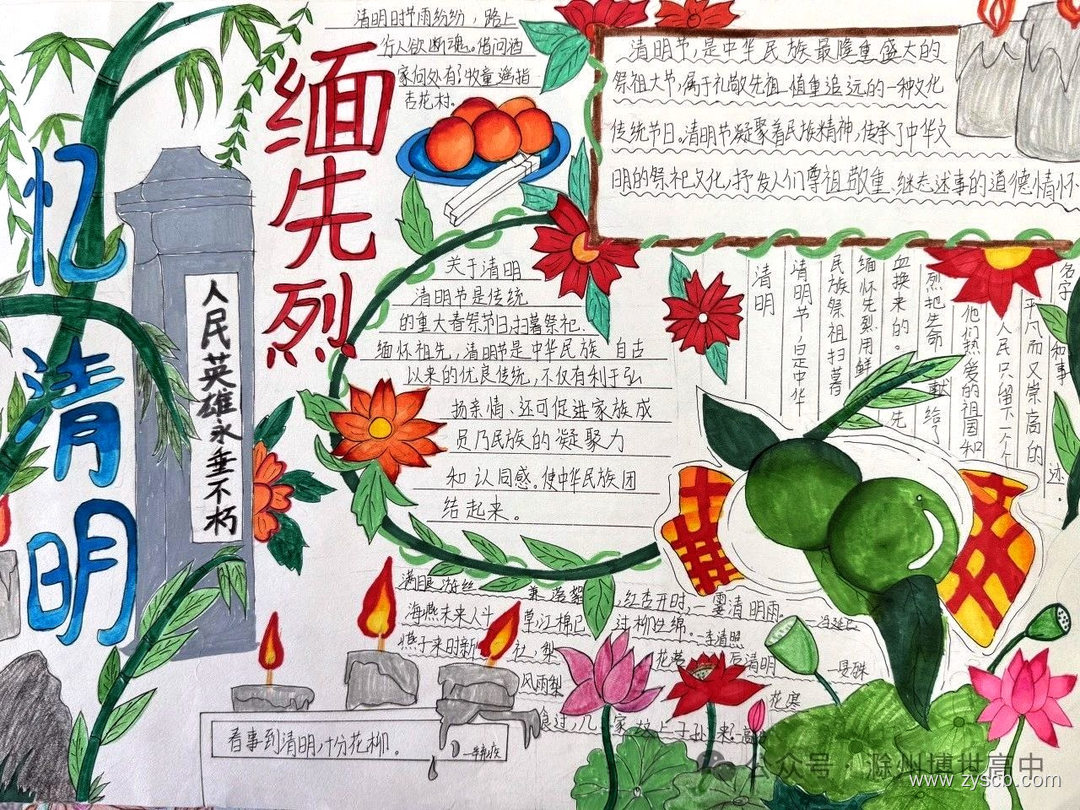 忆清明
缅先烈
人民英雄永垂不朽
清明时节雨纷纷，路上
行人欲断魂。借问酒
家何处有？牧童遥指
杏花村。
清明节，是中华民族最隆重盛大的
祭祖大节，属于礼敬先祖、慎重追远的一种文化
传统节日。清明节凝聚着民族精神，传承了中华文
明的祭祀文化，抒发人们尊祖敬重、继志述事的道德情怀
关于清明
清明节是传统
的重大春祭节日，扫墓祭祀、
缅怀祖先，清明节是中华民族自古
以来的优良传统，不仅有利于弘
扬亲情、还可促进家族成
员乃民族的凝聚力
和认同感。使中华民族团
结起来。
清明
清明节，是中华
民族祭祖扫墓
缅怀先烈用鲜
血换来的。先
烈把生命献给了
他们热爱的祖国和
人民只留下一个个
平凡而又崇高的
名字和事迹。
满眼游丝兼落絮，红杏开时，一霎清明雨。
海燕未来人斗草，江梅已过柳生绵。—李清照
燕子来时新社，梨花落后清明—晏殊
看事到清明十分花柳。
公众号·滁州博世高中
www.zyscb.com